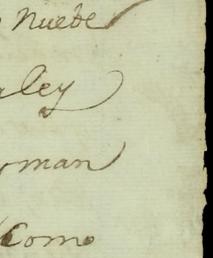 Nuebe
ley
man
Como